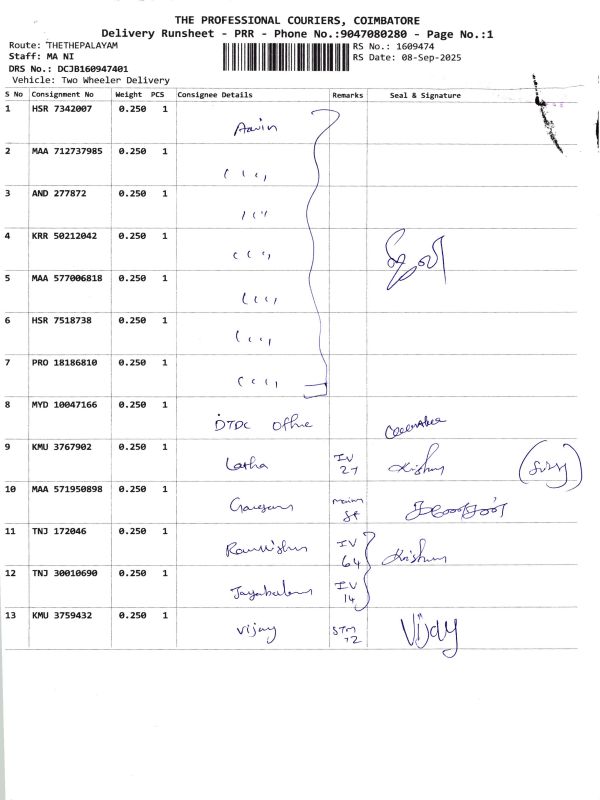 THE PROFESSIONAL COURIERS, COIMBATORE
Delivery Runsheet - PRR - Phone No.:9047080280 - Page No.:1
Route: THETHEPALAYAM RS No.: 1609474
Staff: MA NI RS Date: 08-Sep-2025
DRS No.: DCJB160947401
Vehicle: Two Wheeler Delivery
S No Consignment No Weight PCS Consignee Details Remarks Seal & Signature
1 HSR 7342007 0.250 1
2 MAA 712737985 0.250 1
3 AND 277872 0.250 1
4 KRR 50212042 0.250 1
5 MAA 577006818 0.250 1
6 HSR 7518738 0.250 1
7 PRO 18186810 0.250 1
8 MYD 10047166 0.250 1 DTDC Office
9 KMU 3767902 0.250 1 Latha IV 27 Krishnn
10 MAA 571950898 0.250 1 main St
11 TNJ 172046 0.250 1 IV 64 Krishnn
12 TNJ 30010690 0.250 1 IV 14
13 KMU 3759432 0.250 1 Vijay STM 72 Vijay